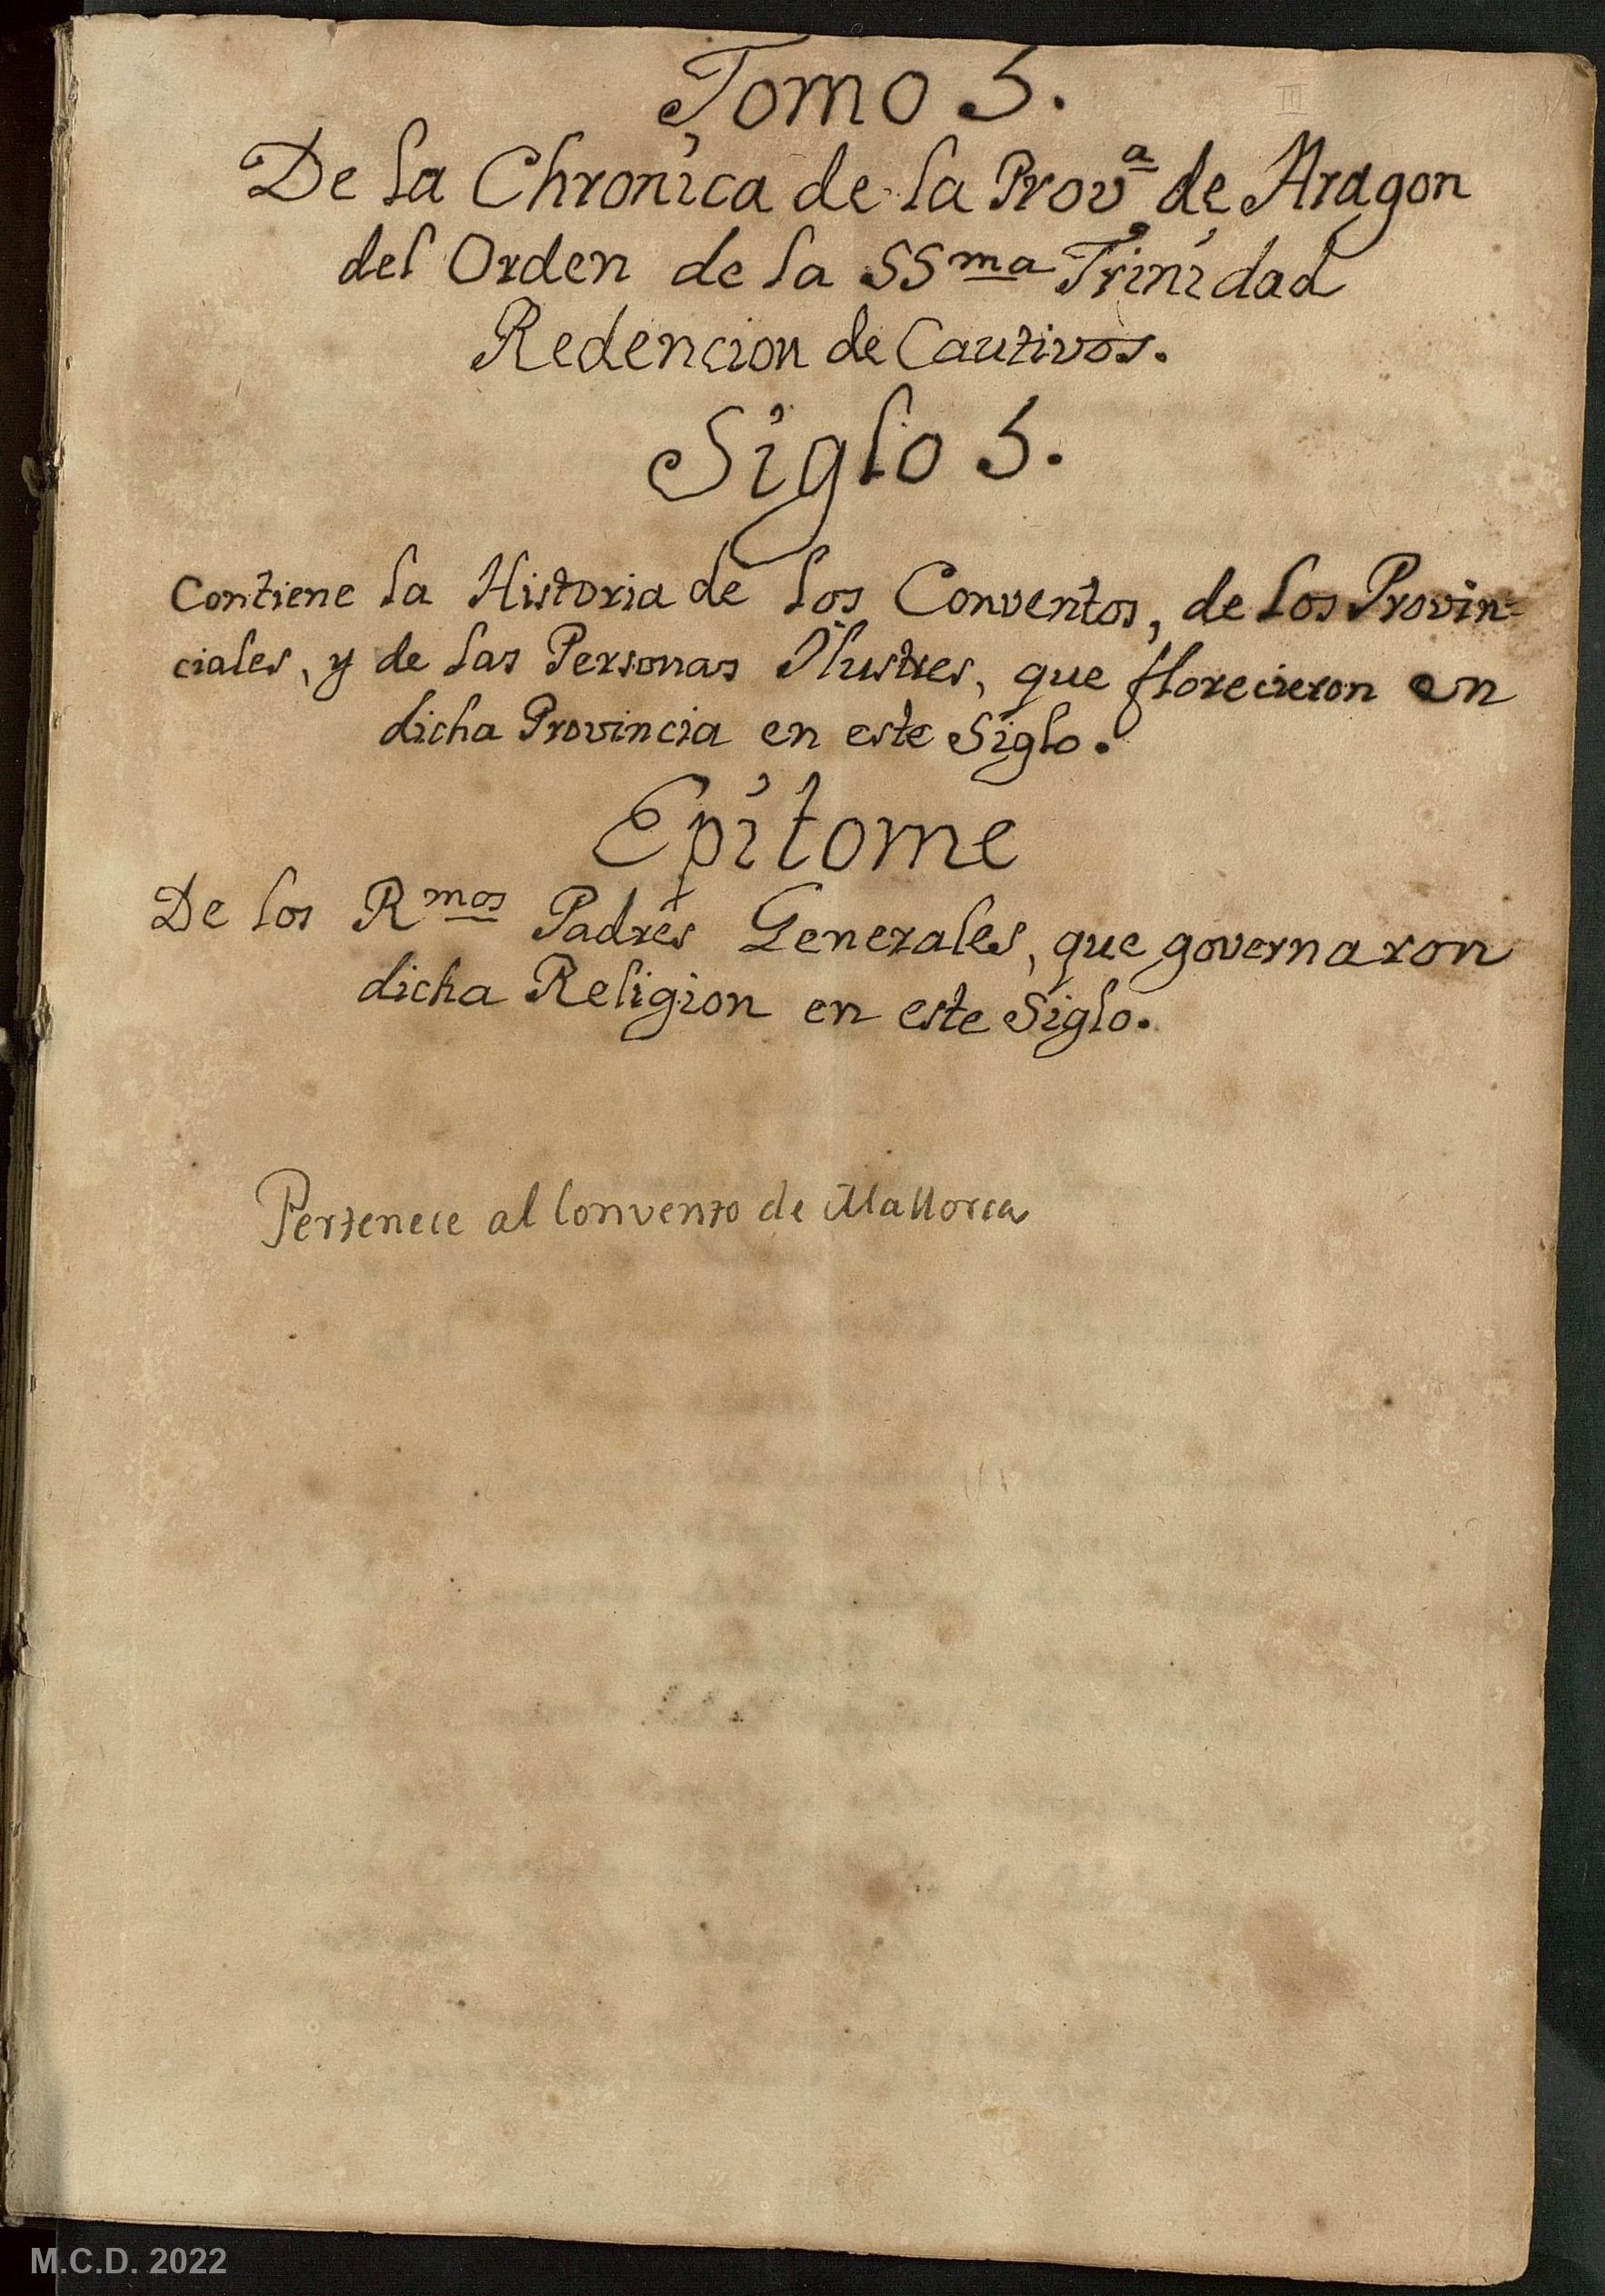 Tomo 5.
De la Chronica de la Prov.ª de Aragon
del Orden de la SSma Trinidad
Redencion de Cautivos.
Siglo 5.
Contiene la Historia de los Conventos, de los Provin-
ciales, y de las Personas Ilustres, que florecieron en
dicha Provincia en este Siglo.
Epitome
De los Rmos Padres Generales, que governaron
dicha Religion en este Siglo.
Pertenece al Convento de Mallorca
M.C.D. 2022